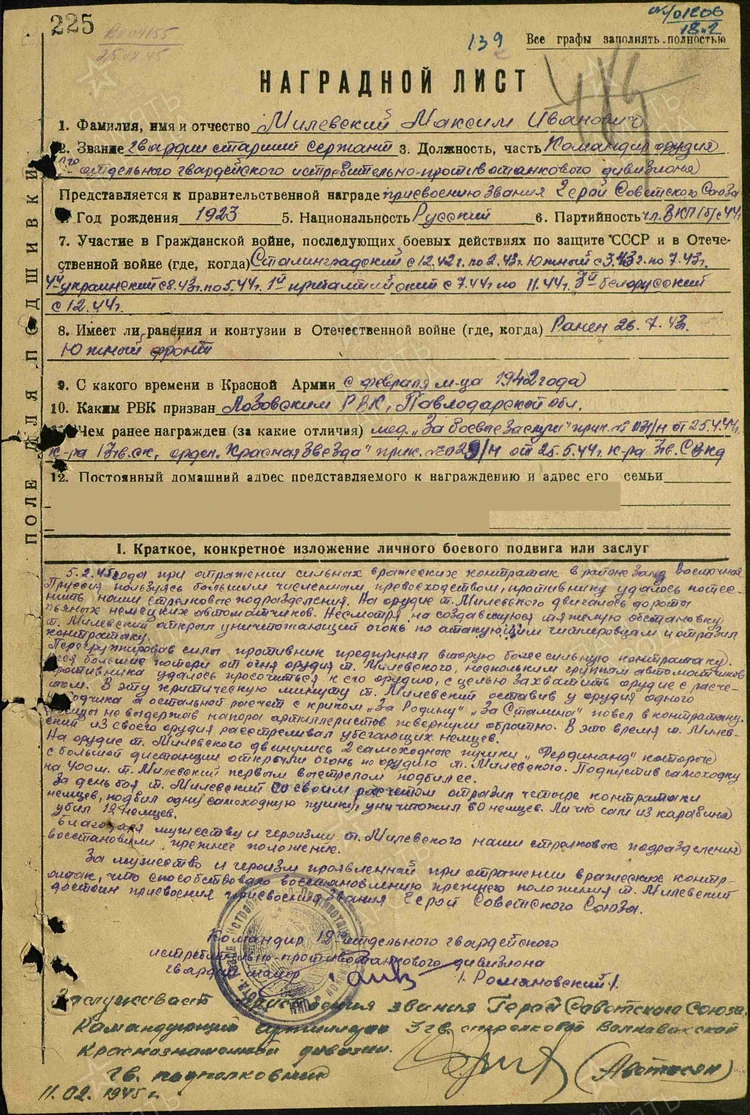 225
18.2
139 Все графы заполнять полностью
НАГРАДНОЙ ЛИСТ
1. Фамилия, имя и отчество Милевский Максим Иванович
2. Звание гвардии старший сержант 3. Должность, часть Командир орудия
отдельного гвардейского истребительно-противотанкового дивизиона
Представляется к правительственной награде присвоению звания Герой Советского Союза
Год рождения 1923 5. Национальность Русский 6. Партийность чл. ВКП(б) с 44г.
7. Участие в Гражданской войне, последующих боевых действиях по защите СССР и в Отече-
ственной войне (где, когда) Сталинградский с 12.42г. по 2.43г. Южный с 3.43г. по 7.43г.
4й украинский с 8.43г. по 5.44г. 1й с 7.44г. по 11.44г. 3й белорусский
с 12.44г.
8. Имеет ли ранения и контузии в Отечественной войне (где, когда) Ранен 26.7.43г.
Южный фронт
9. С какого времени в Красной Армии с февраля м-ца 1942 года
10. Каким РВК призван Лозовским РВК, Павлодарской обл.
Чем ранее награжден (за какие отличия) мед. „За боевые заслуги" прик. от 25.4.44г.
к-ра орден. „Красная Звезда" прик. от 25.5.44г. к-ра
12. Постоянный домашний адрес представляемого к награждению и адрес его семьи
ПОЛЕ ДЛЯ ПОДШИВКИ
I. Краткое, конкретное изложение личного боевого подвига или заслуг
5.2.45 года при отражении сильных вражеских контратак в районе Восточная
Пруссия пользуясь большим численным превосходством, противнику удалось потес-
нить наши стрелковые подразделения. На орудие т. Милевского двигалось до роты
пьяных немецких автоматчиков. Несмотря на создавшуюся тяжелую обстановку
т. Милевский открыл уничтожающий огонь по атакующим гитлеровцам и отразил
контратаку.
Перегруппировав силы противник предпринял вторую более сильную контратаку.
большие потери от огня орудия т. Милевского, нескольким группам автоматчиков
противника удалось просочиться к его орудию, с целью захватить орудие с расче-
том. В эту критическую минуту т. Милевский оставив у орудия одного
наводчика и остальной расчет с криком „За Родину" „За Сталина" повел в контратаку.
Немцы не выдержав напора артиллеристов повернули обратно. В это время т. Милев-
ский из своего орудия расстреливал убегающих немцев.
На орудие т. Милевского двинулись 2 самоходные пушки „Фердинанд" которые
с большой дистанции открыли огонь по орудию т. Милевского. Подпустив самоходку
на 400м. т. Милевский первым выстрелом подбил ее.
За день боя т. Милевский со своим расчетом отразил четыре контратаки
немцев, подбил одну самоходную пушку, уничтожил 60 немцев. Лично сам из карабина
убил 12 немцев.
Благодаря мужеству и героизму т. Милевского наши стрелковые подразделения
восстановили прежнее положение.
За мужество и героизм проявленный при отражении вражеских контр-
атак, что способствовало восстановлению прежнего положения т. Милевский
достоин присвоения звания Герой Советского Союза.
Командир отдельного гвардейского
истребительно-противотанкового дивизиона
гвардии майор /Романовский/.
Заслуживает присвоения звания Герой Советского Союза.
Командующий артиллерии 3 гв. стрелковой Волновахской
Краснознаменной дивизии.
гв. подполковник
11.02.1945г.